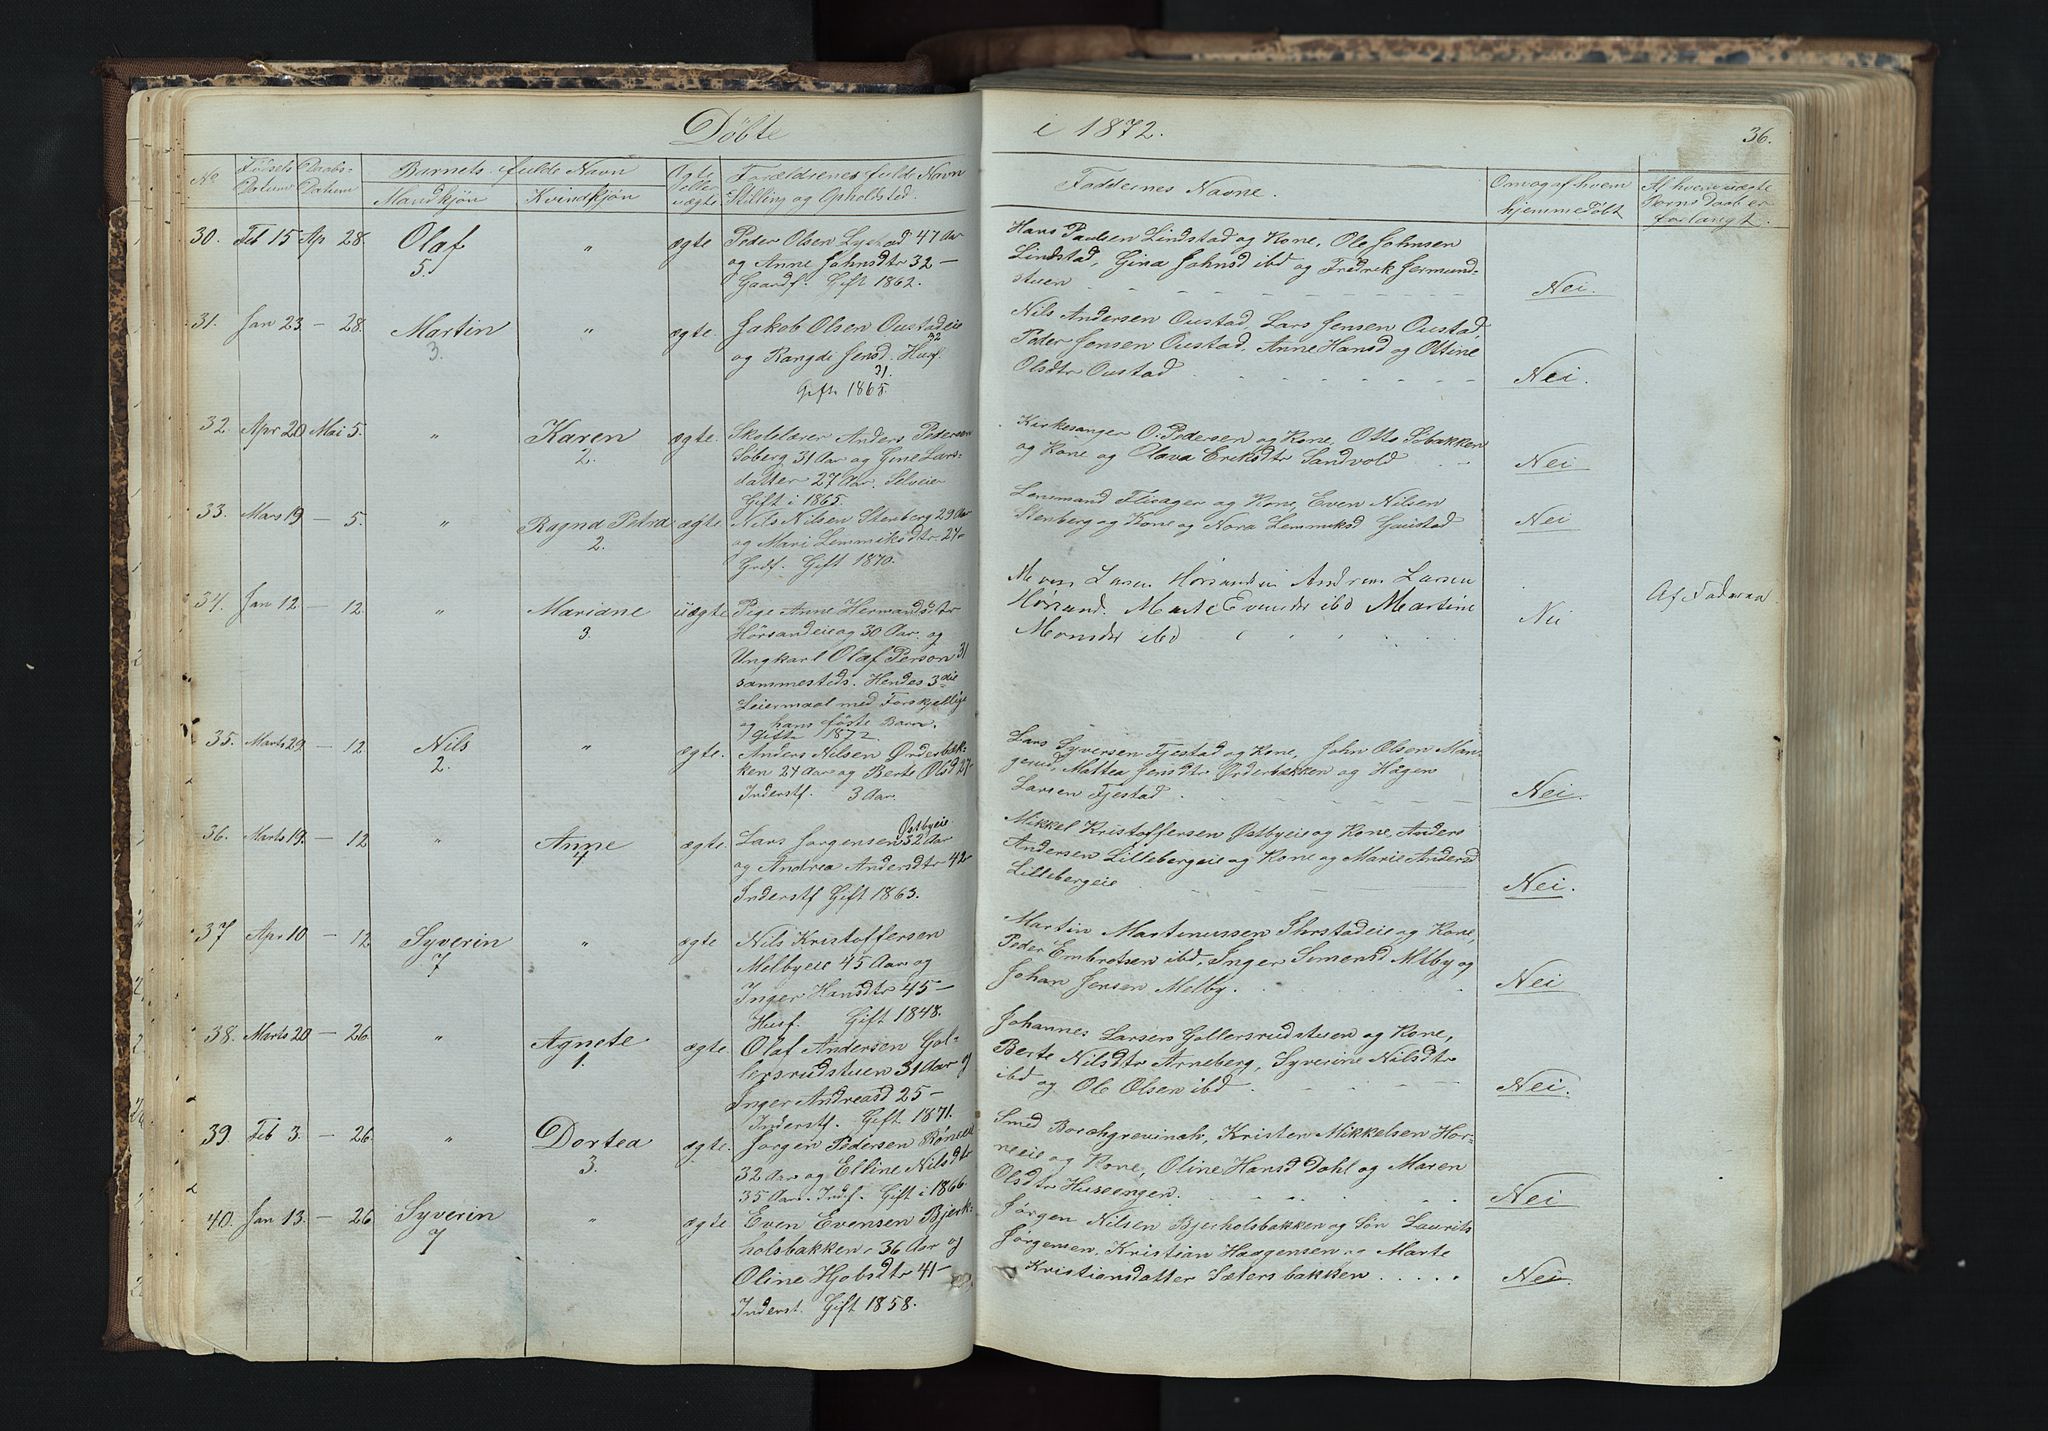 Døbte i 1872. 36.
No Fødsels Datum Daabs- Datum Barnets fulde Navn Mandkjøn Kvindkjøn Ægte eller uægte Forældrenes fulde Navn Stilling og Opholdsted.
Faddernes Navne. Om og af hvem hjemmedøbt Af hvem uægte Børns Daab er forlangt.
30. Feb 15 Ap 28. Olaf 5. " ægte Peder Olsen 47 Aar
og Anne Johnsdtr 32 —
Gaardf. Gift 1862.
Hans Paulsen Lindstad og Kone, Ole Johnsen
Lindstad, Gina Johnsd ibd og Fredrik Jermund-
stuen Nei.
31. Jan 23 — 28. Martin 3. " ægte. Jakob Olsen Oustadeie 32
og Rangdi Jensd. Husf. 31.
Gift 1865.
Nils Andersen Oustad, Lars Jensen Oustad,
Peder Jonsen Oustad. Anne Hansd og Oline
Olsdtr Oustad Nei.
32. Apr 20 Mai 5. " Karen 2. ægte. Skolelærer Anders Pedersen
Soberg 31 Aar og Gine Lars-
datter 27 Aar. Selveier
Gift i 1865.
Kirkesanger O. Pedersen og Kone, Otto Sobakken
og Kone og Olava Eriksdtr Sandvold Nei
33. Mars 19 — 5. " Ragna Petra 2. ægte Nils Nilsen Stenberg 29 Aar
og Mari Lemmiksdtr 27-
Grdf. Gift 1870.
Lensmand og Kone, Even Nilsen
Stenberg og Kone og Nora Lemmiksd Gaustad Nei
34. Jan 12 — 12. " Mariane 3. uægte Pige Anne Hermandsdtr
Hörsandeie 30 Aar og
Ungkarl Olaf Person 31
sammesteds. Hendes 3die
Leiermaal med Forskjellige
og hans første Barn.
Gifte 1872
Larsen Andreas Larsen
Hörsand. Evensdtr ibd Martine
Monsdtr ibd Nei
35. Marts 29 — 12 Nils 2. " ægte. Anders Nilsen Ørderbak-
ken 24 Aar og Berte Olsd 27-
Inderstf. 3 Aar.
Lars Syversen Fjestad og Kone, John Olsen Man-
gerud, Mattea Jensdtr Ørderbakken og Hågen
Larsen Fjestad Nei.
36. Marts 19. — 12 " Anne 4 ægte. Lars Jorgensen Østbyeie 32 Aar
og Andrea Andersdtr 42-
Inderstf Gift 1863.
Mikkel Kristoffersen Østbyeie og Kone, Anders
Andersen Lillebergeie og Kone og Marie Andersd
Lillebergeie Nei.
37 Apr 10 — 12 Syverin 7 " ægte Nils Kristoffersen
Melbyeie 45 Aar og
Inger Hansdtr 45 —
Husf. Gift 1848.
Martin Martinussen og Kone,
Peder Embretsen ibd, Inger Simensd Mlby og
Johan Jensen Melby. Nei
38. Marts 20 — 26. " Agnete 1. ægte. Olaf Andersen Gol-
lersrudstuen 31 Aar og
Inger Andreasd 25 —
Inderstf. Gift 1871.
Johannes Larsen Gollersrudstuen og Kone,
Berte Nilsdtr Arneberg, Syverine Nilsdtr
ibd og Ole Olsen ibd. Nei.
39. Feb 3. — 26. " Dortea 3. ægte Jørgen Pedersen
32 Aar og Elline Nilsdtr
35 Aar. Indf. Gift i 1866
Smed Kristen Mikkelsen Hor-
neeie og Kone, Oline Hansd Dahl og Maren
Olsdtr Huseengen. Nei
40. Jan 13. — 26 Syverin 7 " ægte Even Evensen Bjerk-
holsbakken 36 Aar og
Oline 41 —
Inderst. Gift 1858.
Jørgen Nilsen Bjerholsbakken og Søn Laurits
Jørgensen, Kristian Haagensen og Marte
Kristiansdatter Sætersbakken Nei.